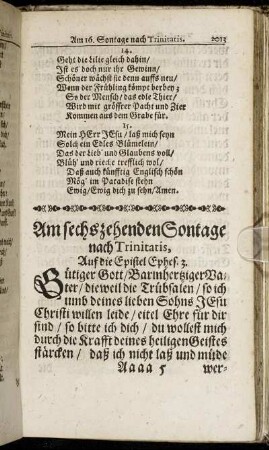 Am 16. Sontage nach Trinitatis. 2013
14.
Geht die Lilie gleich dahin/
Ist es doch nur ihr Gewinn/
Schöner wächst sie denn auffs neu/
Wenn der Frühling kömpt herbey:
So der Mensch/ das edle Thier/
Wird mit grösserer Pacht und Zier
Kommen aus dem Grabe für.
15.
Mein HErr JEsu/ laß mich seyn
Solch ein Edles Blümelein/
Das der Lieb' und Glaubens voll/
Blüh' und rieche trefflich wol/
Daß auch künfftig Englisch schön
Mög' im Paradise stehn
Ewig/ Ewig dich zu sehn/ Amen.
Am sechszehenden Sontage
nach Trinitatis,
Auf die Epistel Ephes. 3.
Gütiger Gott/ Barmhertziger Va-
ter/ dieweil die Trübsalen/ so ich
umb deines lieben Sohns JEsu
Christi willen leide/ eitel Ehre für dir
sind/ so bitte ich dich/ du wollest mich
durch die Krafft deines heiligen Geistes
stärcken/ daß ich nicht laß und müde
Aaaa 5 wer-